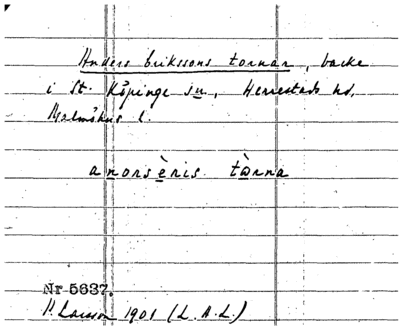 Anders Erikssons tornar, backe
i St. Köpinge sn, Herrestads hd,
Malmöhus l.
anorsèris tòrna
Nr 5637.
P. Larsson 1901 (L.A.L.)